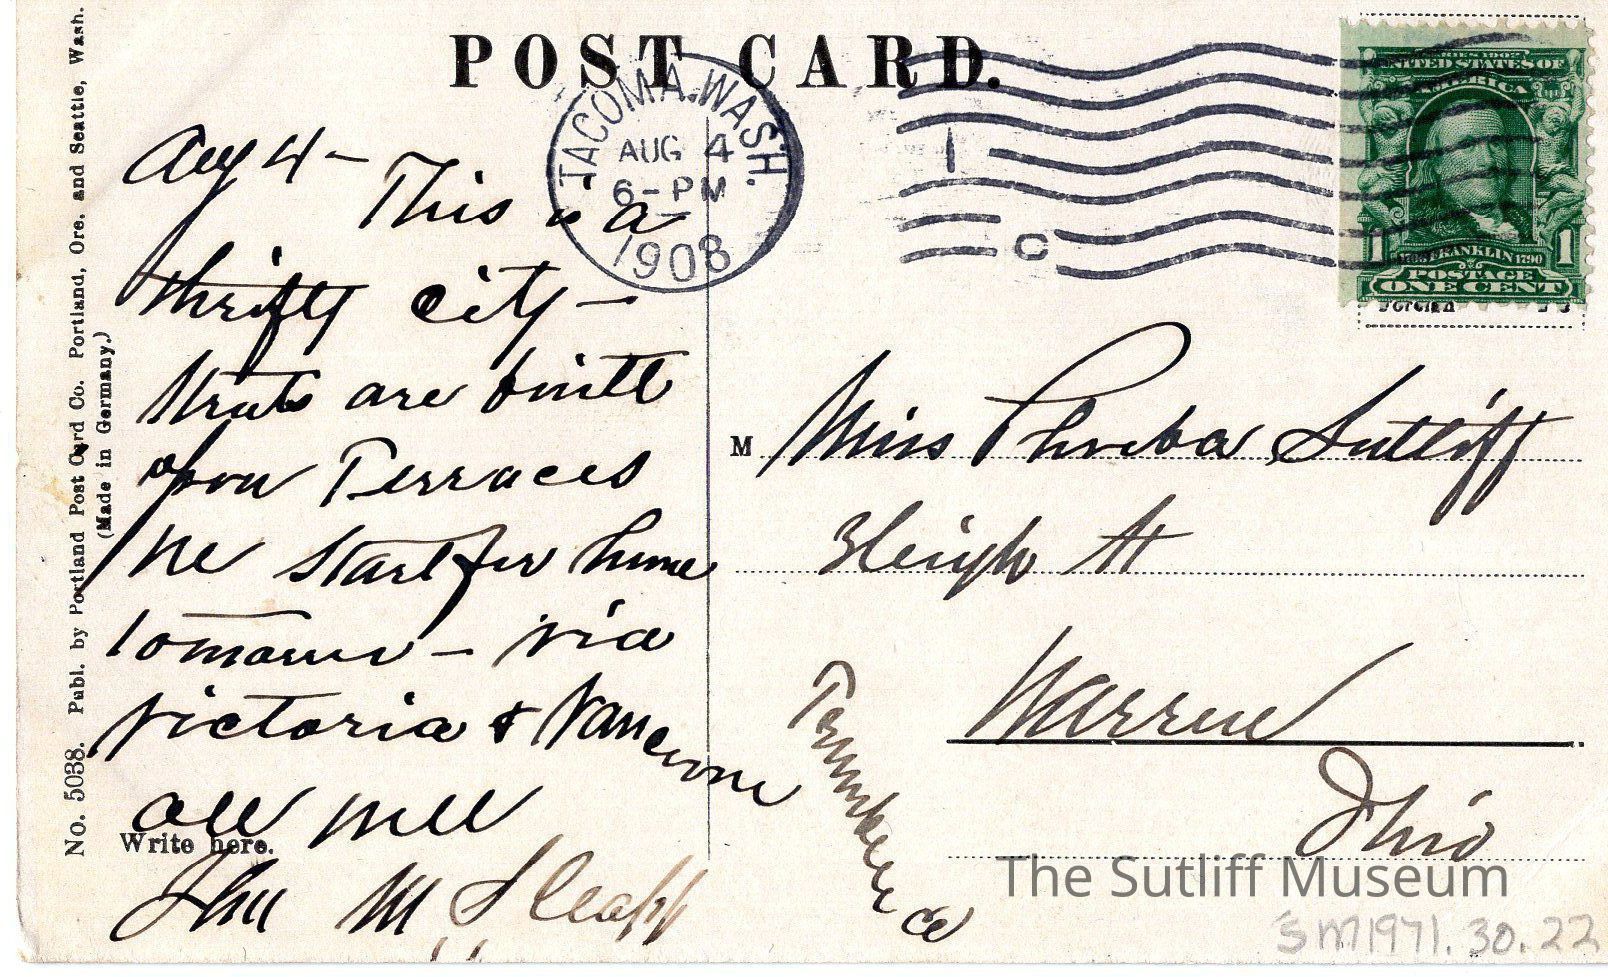 POST CARD.
TACOMA. WASH.
AUG 4
6-PM
1908
1
C
UNITED STATES OF
AMERICA
1 FRANKLIN 1790 1
POSTAGE
ONE CENT
No. 5038. Publ. by Portland Post Card Co. Portland, Ore. and Seattle, Wash.
(Made in Germany.)
Aug 4 - This is a
thrifty city -
Streets are built
upon Terraces
We start for home
tomorrow - via
Victoria & Vancouver
all well
Write here.
M
M Miss Phoeba Sutliff
High St
Warren
Ohio
Trumbull Co
The Sutliff Museum
SM1971.30.22